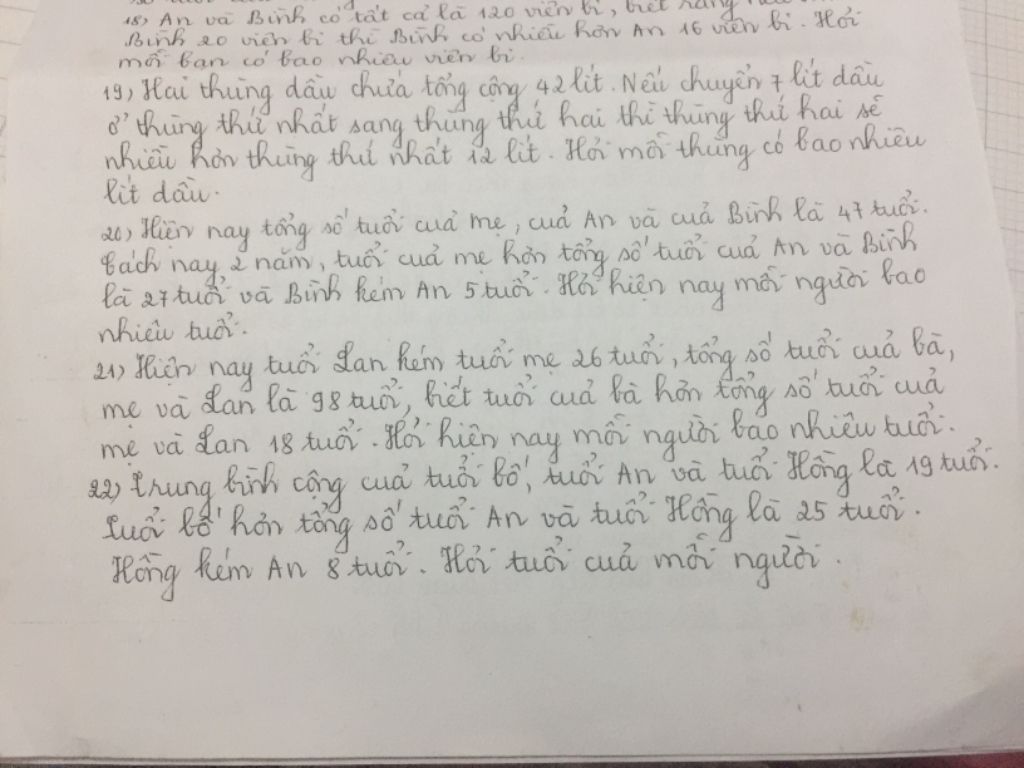 18) An và Bình có tất cả là 120 viên bi, biết rằng nếu
Bình 20 viên bi thì Bình có nhiều hơn An 16 viên bi. Hỏi
mỗi bạn có bao nhiêu viên bi.
19) Hai thùng dầu chứa tổng cộng 42 lít. Nếu chuyển 7 lít dầu
ở thùng thứ nhất sang thùng thứ hai thì thùng thứ hai sẽ
nhiều hơn thùng thứ nhất 12 lít. Hỏi mỗi thùng có bao nhiêu
lít dầu.
20) Hiện nay tổng số tuổi của mẹ, của An và của Bình là 47 tuổi.
Cách nay 2 năm, tuổi của mẹ hơn tổng số tuổi của An và Bình
là 27 tuổi và Bình kém An 5 tuổi. Hỏi hiện nay mỗi người bao
nhiêu tuổi.
21) Hiện nay tuổi Lan kém tuổi mẹ 26 tuổi, tổng số tuổi của bà,
mẹ và Lan là 98 tuổi, biết tuổi của bà hơn tổng số tuổi của
mẹ và Lan 18 tuổi. Hỏi hiện nay mỗi người bao nhiêu tuổi.
22) Trung bình cộng của tuổi bố, tuổi An và tuổi Hồng là 19 tuổi.
Tuổi bố hơn tổng số tuổi An và tuổi Hồng là 25 tuổi.
Hồng kém An 8 tuổi. Hỏi tuổi của mỗi người.